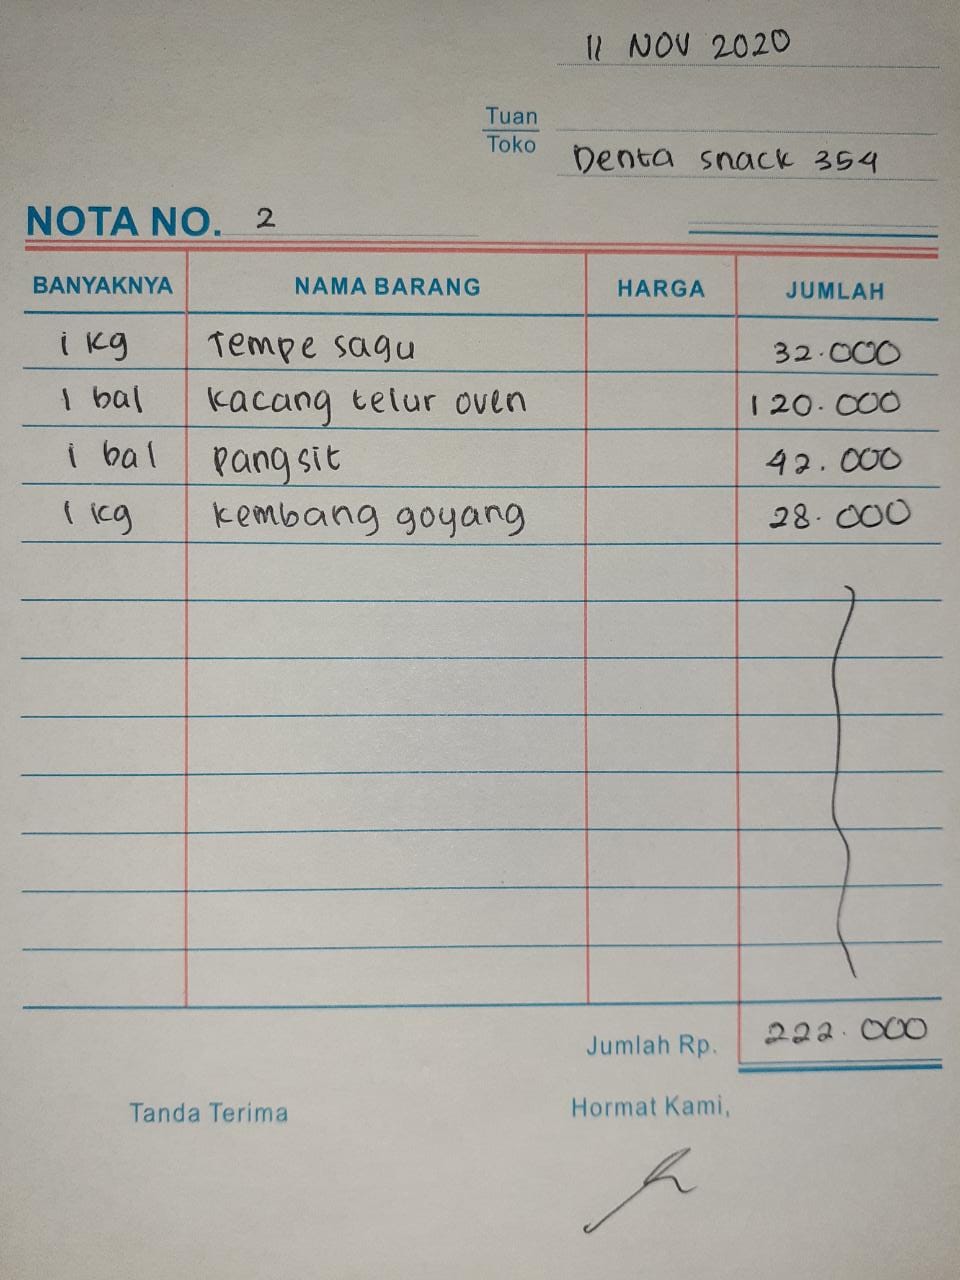 11 NOV 2020
Tuan
Toko Denta snack 354
NOTA NO. 2
BANYAKNYA NAMA BARANG HARGA JUMLAH
1 kg Tempe sagu 32.000
1 bal kacang telur oven 120.000
1 bal pangsit 42.000
1 kg kembang goyang 28.000
Jumlah Rp. 222.000
Tanda Terima Hormat Kami,